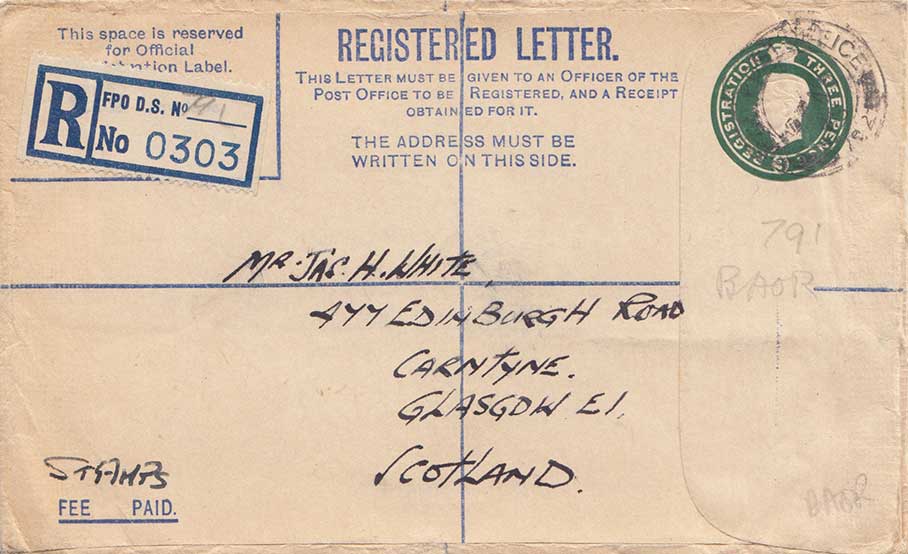 This space is reserved
for Official
Label.
R
FPO D.S. No 41
No 0303
REGISTERED LETTER.
THIS LETTER MUST BE GIVEN TO AN OFFICER OF THE
POST OFFICE TO BE REGISTERED, AND A RECEIPT
OBTAINED FOR IT.
THE ADDRESS MUST BE
WRITTEN ON THIS SIDE.
REGISTRATION THREE PENCE
791
BAOR
MR. JAS. H. WHITE
477 EDINBURGH ROAD
CARNTYNE.
GLASGOW E1.
SCOTLAND.
STAMPS
FEE PAID.
BAOR